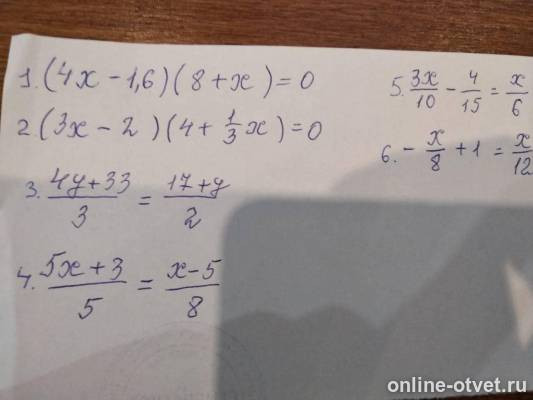 1. (4x - 1,6)(8 + x) = 0
2 (3x - 2)(4 + 1/3 x) = 0
3. (4y + 33)/3 = (17 + y)/2
4. (5x + 3)/5 = (x - 5)/8
5. 3x/10 - 4/15 = x/6
6. - x/8 + 1 = x/12
online-otvet.ru